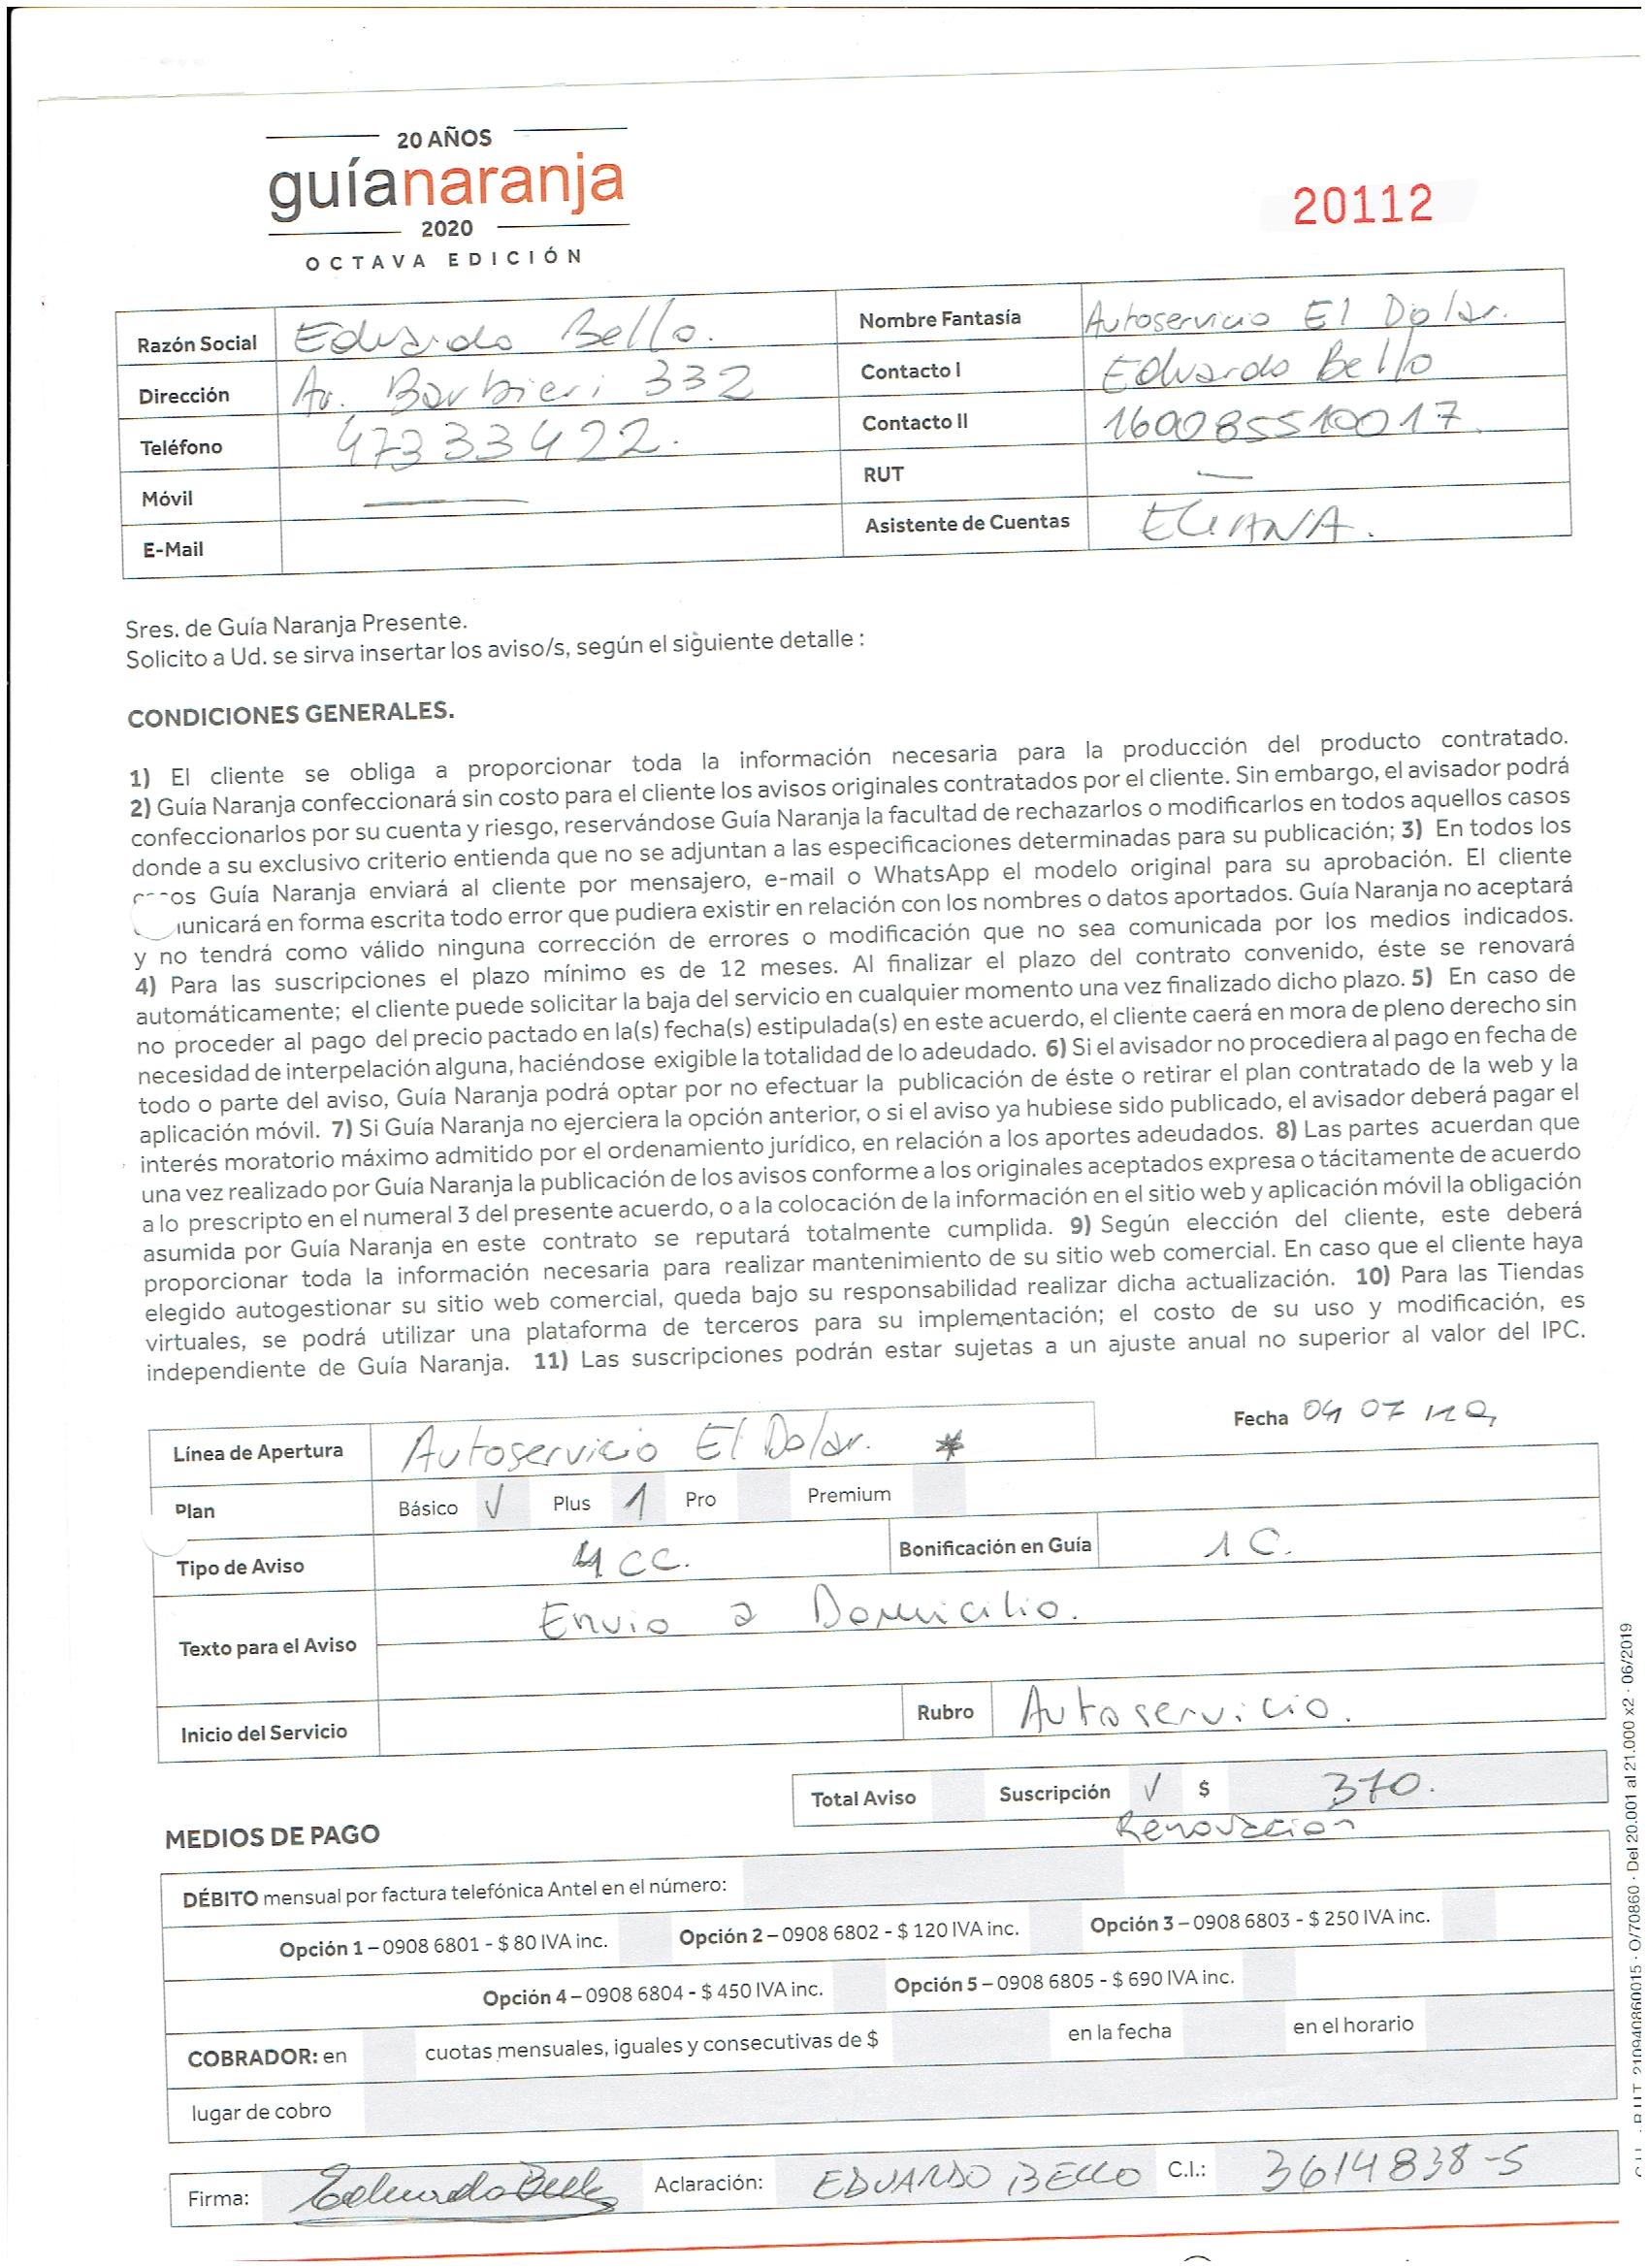 20 AÑOS
guíanaranja
2020
OCTAVA EDICIÓN
20112
Razón Social Eduardo Bello.
Dirección Av. Barbieri 332
Teléfono 47333422.
Móvil —
E-Mail
Nombre Fantasía Autoservicio El Dolar.
Contacto I Eduardo Bello
Contacto II 160085510017.
RUT —
Asistente de Cuentas ELIANA.
Sres. de Guía Naranja Presente.
Solicito a Ud. se sirva insertar los aviso/s, según el siguiente detalle :
CONDICIONES GENERALES.
1) El cliente se obliga a proporcionar toda la información necesaria para la producción del producto contratado.
2) Guía Naranja confeccionará sin costo para el cliente los avisos originales contratados por el cliente. Sin embargo, el avisador podrá
confeccionarlos por su cuenta y riesgo, reservándose Guía Naranja la facultad de rechazarlos o modificarlos en todos aquellos casos
donde a su exclusivo criterio entienda que no se adjuntan a las especificaciones determinadas para su publicación; 3) En todos los
os Guía Naranja enviará al cliente por mensajero, e-mail o WhatsApp el modelo original para su aprobación. El cliente
unicará en forma escrita todo error que pudiera existir en relación con los nombres o datos aportados. Guía Naranja no aceptará
y no tendrá como válido ninguna corrección de errores o modificación que no sea comunicada por los medios indicados.
4) Para las suscripciones el plazo mínimo es de 12 meses. Al finalizar el plazo del contrato convenido, éste se renovará
automáticamente; el cliente puede solicitar la baja del servicio en cualquier momento una vez finalizado dicho plazo. 5) En caso de
no proceder al pago del precio pactado en la(s) fecha(s) estipulada(s) en este acuerdo, el cliente caerá en mora de pleno derecho sin
necesidad de interpelación alguna, haciéndose exigible la totalidad de lo adeudado. 6) Si el avisador no procediera al pago en fecha de
todo o parte del aviso, Guía Naranja podrá optar por no efectuar la publicación de éste o retirar el plan contratado de la web y la
aplicación móvil. 7) Si Guía Naranja no ejerciera la opción anterior, o si el aviso ya hubiese sido publicado, el avisador deberá pagar el
interés moratorio máximo admitido por el ordenamiento jurídico, en relación a los aportes adeudados. 8) Las partes acuerdan que
una vez realizado por Guía Naranja la publicación de los avisos conforme a los originales aceptados expresa o tácitamente de acuerdo
a lo prescripto en el numeral 3 del presente acuerdo, o a la colocación de la información en el sitio web y aplicación móvil la obligación
asumida por Guía Naranja en este contrato se reputará totalmente cumplida. 9) Según elección del cliente, este deberá
proporcionar toda la información necesaria para realizar mantenimiento de su sitio web comercial. En caso que el cliente haya
elegido autogestionar su sitio web comercial, queda bajo su responsabilidad realizar dicha actualización. 10) Para las Tiendas
virtuales, se podrá utilizar una plataforma de terceros para su implementación; el costo de su uso y modificación, es
independiente de Guía Naranja. 11) Las suscripciones podrán estar sujetas a un ajuste anual no superior al valor del IPC.
Fecha 04 07
Línea de Apertura Autoservicio El Dolar. *
Plan Básico √ Plus 1 Pro Premium
Tipo de Aviso 4 CC. Bonificación en Guía 1 C.
Texto para el Aviso Envio a Domicilio.
Inicio del Servicio Rubro Autoservicio.
Total Aviso Suscripción √ $ 370.
Renovacion
MEDIOS DE PAGO
DÉBITO mensual por factura telefónica Antel en el número:
Opción 1 – 0908 6801 - $ 80 IVA inc. Opción 2 – 0908 6802 - $ 120 IVA inc. Opción 3 – 0908 6803 - $ 250 IVA inc.
Opción 4 – 0908 6804 - $ 450 IVA inc. Opción 5 – 0908 6805 - $ 690 IVA inc.
COBRADOR: en cuotas mensuales, iguales y consecutivas de $ en la fecha en el horario
lugar de cobro
Firma: Eduardo Bello Aclaración: EDUARDO BELLO C.I.: 3614838-5
R.U.T. 210940860015 · O/70860 · Del 20.001 al 21.000 x2 · 06/2019